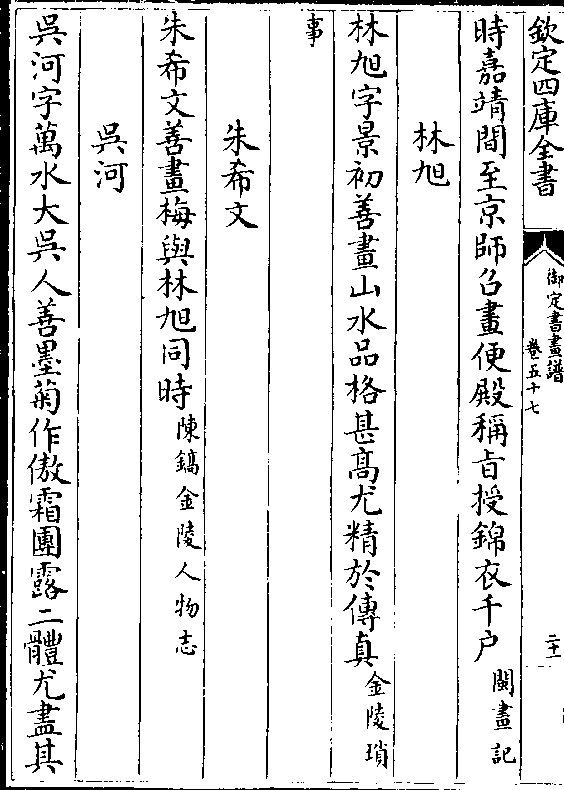 欽定四庫全書
御定書畫譜
卷五十七
二十一
時嘉靖間至京師召畫便殿稱旨授錦衣千户閩畫記
林旭
林旭字景初善畫山水品格甚髙尤精於傳真金陵瑣
事
朱希文
朱希文善畫梅與林旭同時陳鎬金陵人物志
吳河
吳河字萬水大吳人善墨菊作傲霜團露二體尤盡其